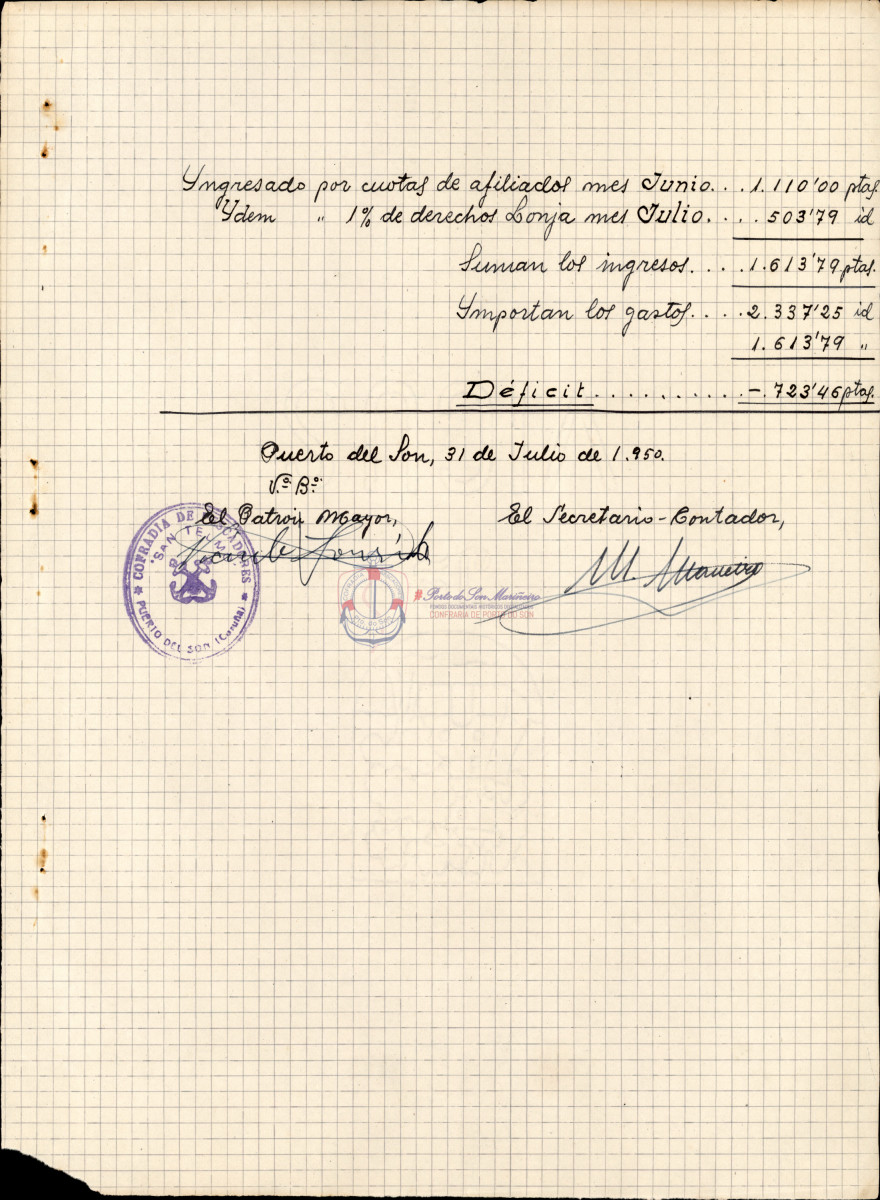 Yngresado por cuotas de afiliados mes Junio. . . 1.110'00 ptas.
Ydem " 1% de derechos Lonja mes Julio. . . . 503'79 id
Suman los ingresos. . . . 1.613'79 ptas.
Ymportan los gastos. . . . 2.337'25 id
1.613'79 "
Déficit. . . . . . . . . . . -. 723'46 ptas.
Puerto del Son, 31 de Julio de 1.950.
V.º B.º
El Patrón Mayor,
El Secretario-Contador,
COFRADIA DE PESCADORES
"SAN TELMO"
PUERTO DEL SON (Coruña)
Porto do Son Mariñeiro
CONFRARÍA DE PORTO DO SON